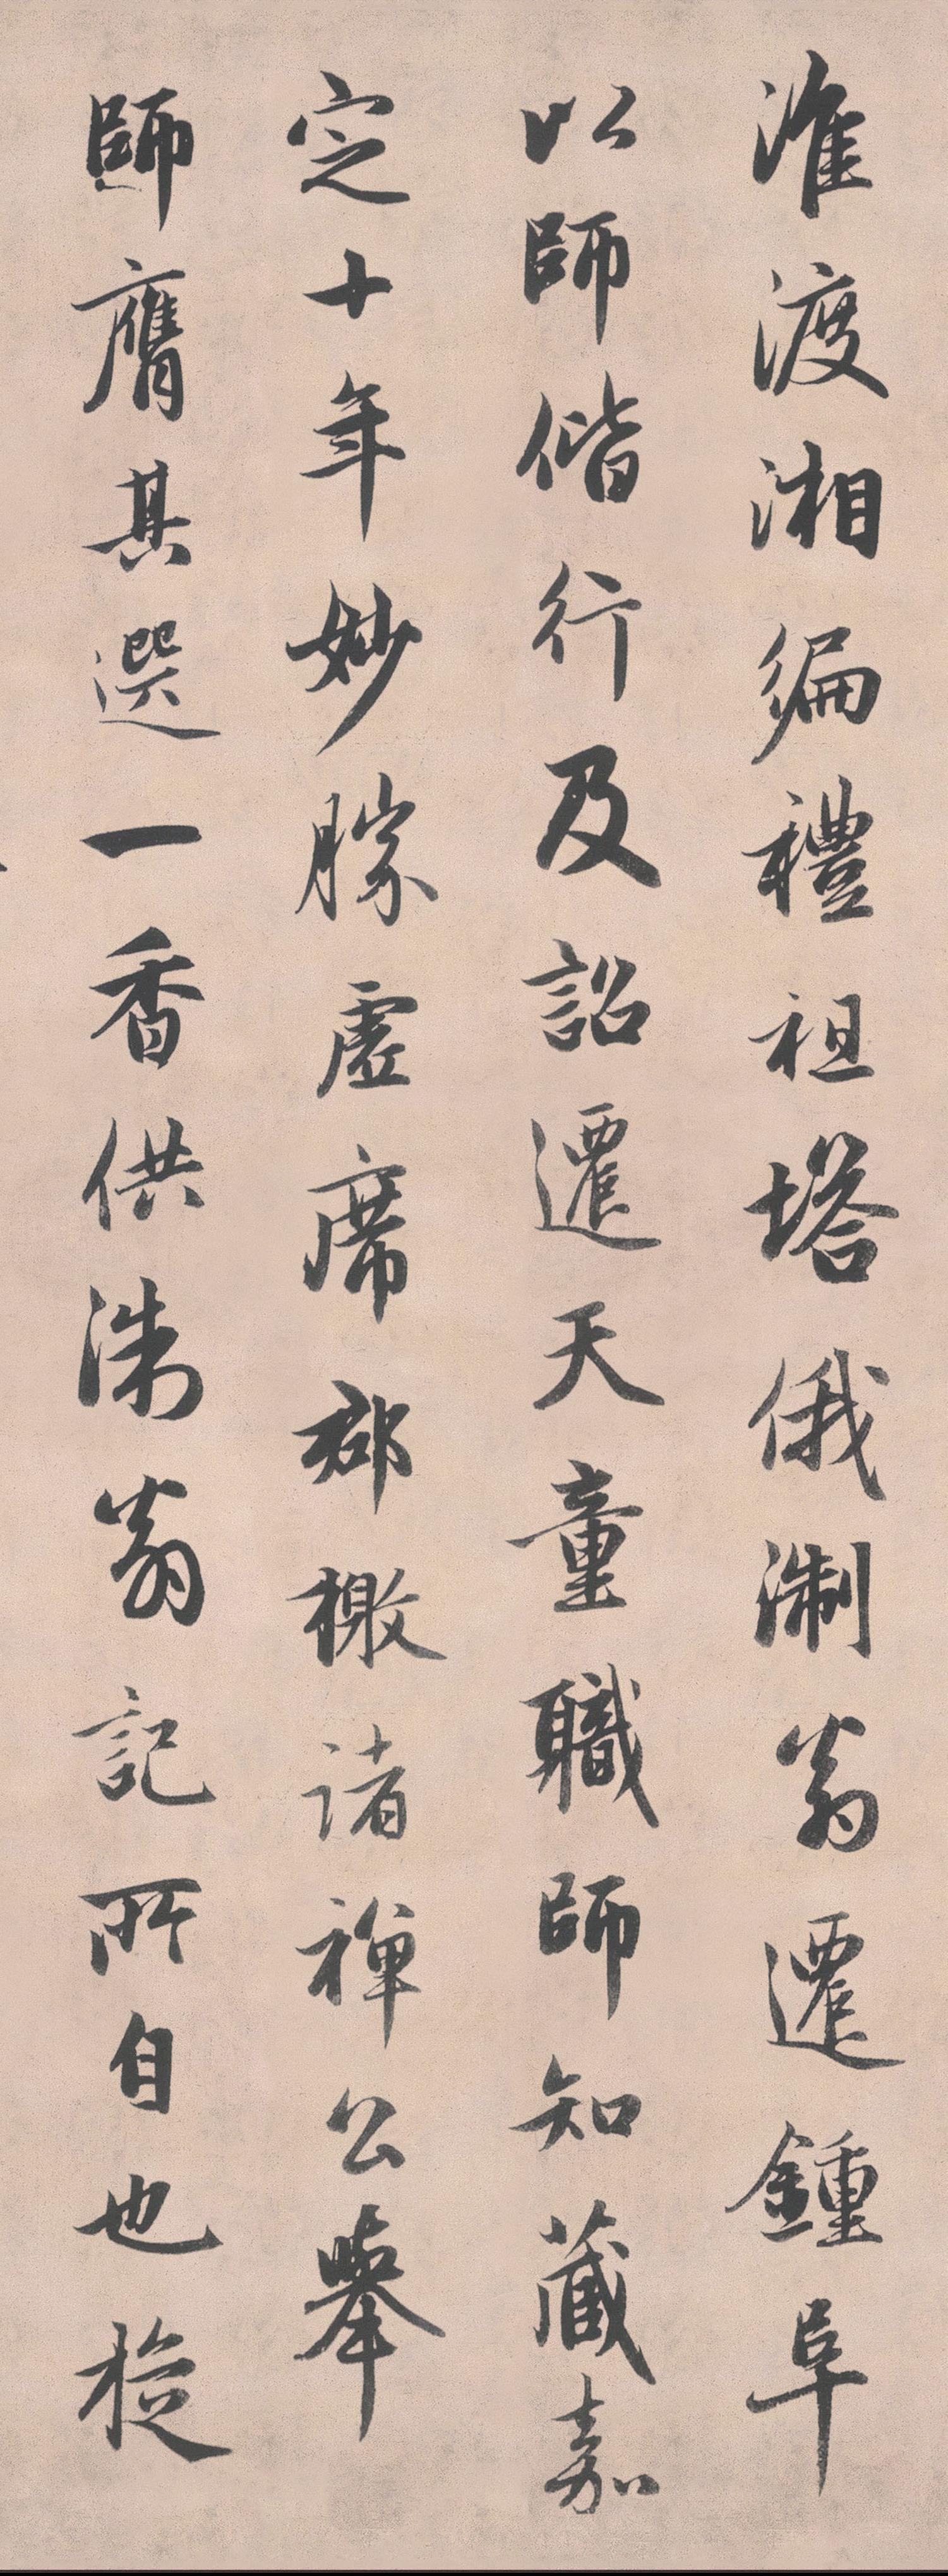 淮渡湘徧禮祖塔俄淛翁遷鍾阜
以師偕行及詔遷天童職師知藏嘉
定十年妙勝虛席郡檄諸禪公舉
師膺其選一香供淛翁記所自也旋